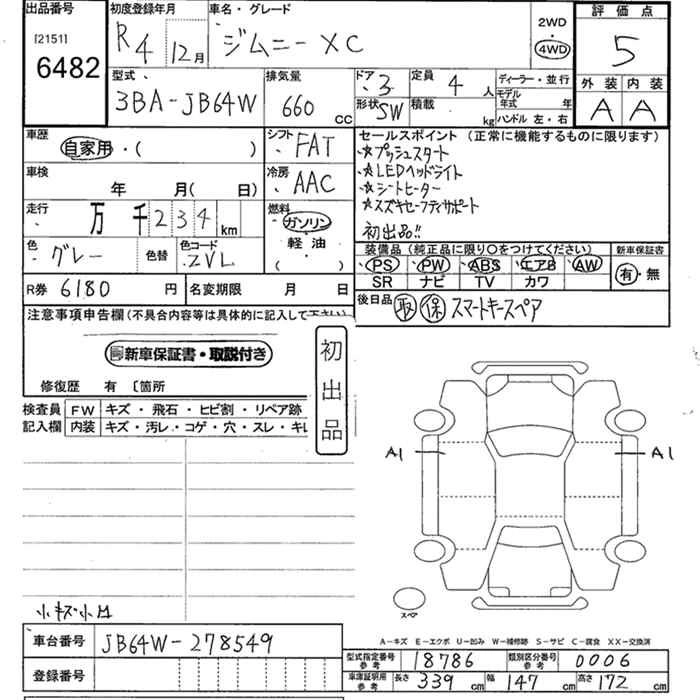 出品番号 初度登録年月 車名・グレード 評価点
[2151]
6482
R4 12月
ジムニー XC
2WD
4WD
5
外装 内装
A A
型式 排気量 ドア 定員 ディーラー・並行
3BA-JB64W 660 cc
3 4 人
モデル年式 年
形状 SW 積載 kg ハンドル 左・右
車歴 シフト セールスポイント (正常に機能するものに限ります)
自家用・( ) FAT
☆プッシュスタート
☆LEDヘッドライト
☆シートヒーター
☆スズキセーフティサポート
初出品!!
車検 冷房
年 月( 日) AAC
走行 燃料
万 千 234 km
ガソリン
軽油
( )
色 色替 色コード
グレー ZVL
装備品(純正品に限り○をつけてください) 新車保証書
PS PW ABS エアB AW
SR ナビ TV カワ
有・無
R券 6180 円 名変期限 月 日
後日品 取 保 スマートキースペア
注意事項申告欄(不具合内容等は具体的に記入して下さい)
新車保証書・取説付き
初出品
修復歴 有 〔箇所
検査員 FW キズ・飛石・ヒビ割・リペア跡
記入欄 内装 キズ・汚レ・コゲ・穴・スレ・キレ
A1 A1
小キズ小凹
スペア
A-キズ E-エクボ U-凹み W-補修跡 S-サビ C-腐食 XX-交換済
車台番号 JB64W-278549
登録番号
型式指定番号 参考 18786 類別区分番号 参考 0006
車庫証明用 参考 長さ 339 cm 幅 147 cm 高さ 172 cm